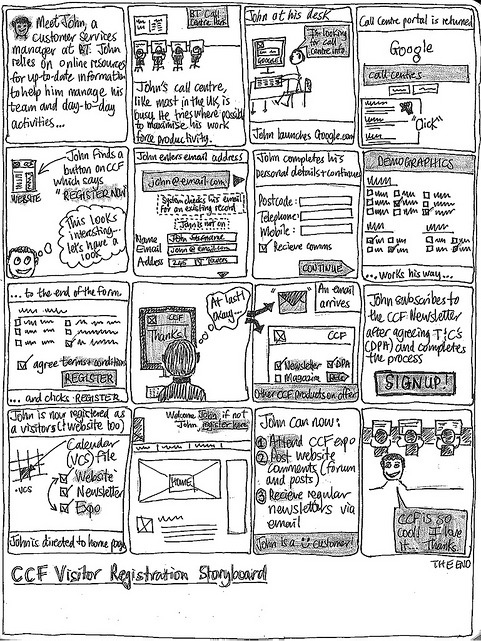 Meet John, a
customer services
manager at BT. John
relies on online resources
for up-to-date information
to help him manage his
team and day-to-day
activities...
BT Call
Centre
John's call centre,
like most in the UK is
busy. He tries where possible
to maximise his work
force productivity.
John at his desk
I'm looking
for call
centre info
GOOGLE
John launches Google.com
Call Centre portal is returned
Google
call centres
"Click"
WEBSITE
John finds a
button on CCF
which says
"REGISTER NOW"
This looks
interesting...
let's have a
look
John enters email address
john@email.com
System checks his email
for an existing record
John is not on
Name
Email
Address
John completes his
personal details + continues
Postcode:
Telephone:
Mobile:
Recieve comms
CONTINUE
DEMOGRAPHICS
...works his way...
...to the end of the form.
agree terms + conditions
REGISTER
...and clicks REGISTER
CCF
Thanks!
At last!
Okay...
An email
arrives
CCF
Newsletter
DPA
Magazine
Other CCF products on offer
John subscribes to
the CCF Newsletter
after agreeing T+C's
(DPA) and completes
the process
SIGNUP!
John is now registered as
a visitors (+ website too)
Calendar
(VCS) file
.vcs
Website
Newsletter
Expo
John's directed to home page
Welcome John, if not
John, register here
HOME
John can now:
1 Attend CCF expo
2 Post website
comments (forum
and posts)
3 Recieve regular
newsletters via
email
John is a customer!
CCF is so
cool! I love
it... Thanks.
THE END
CCF Visitor Registration Storyboard